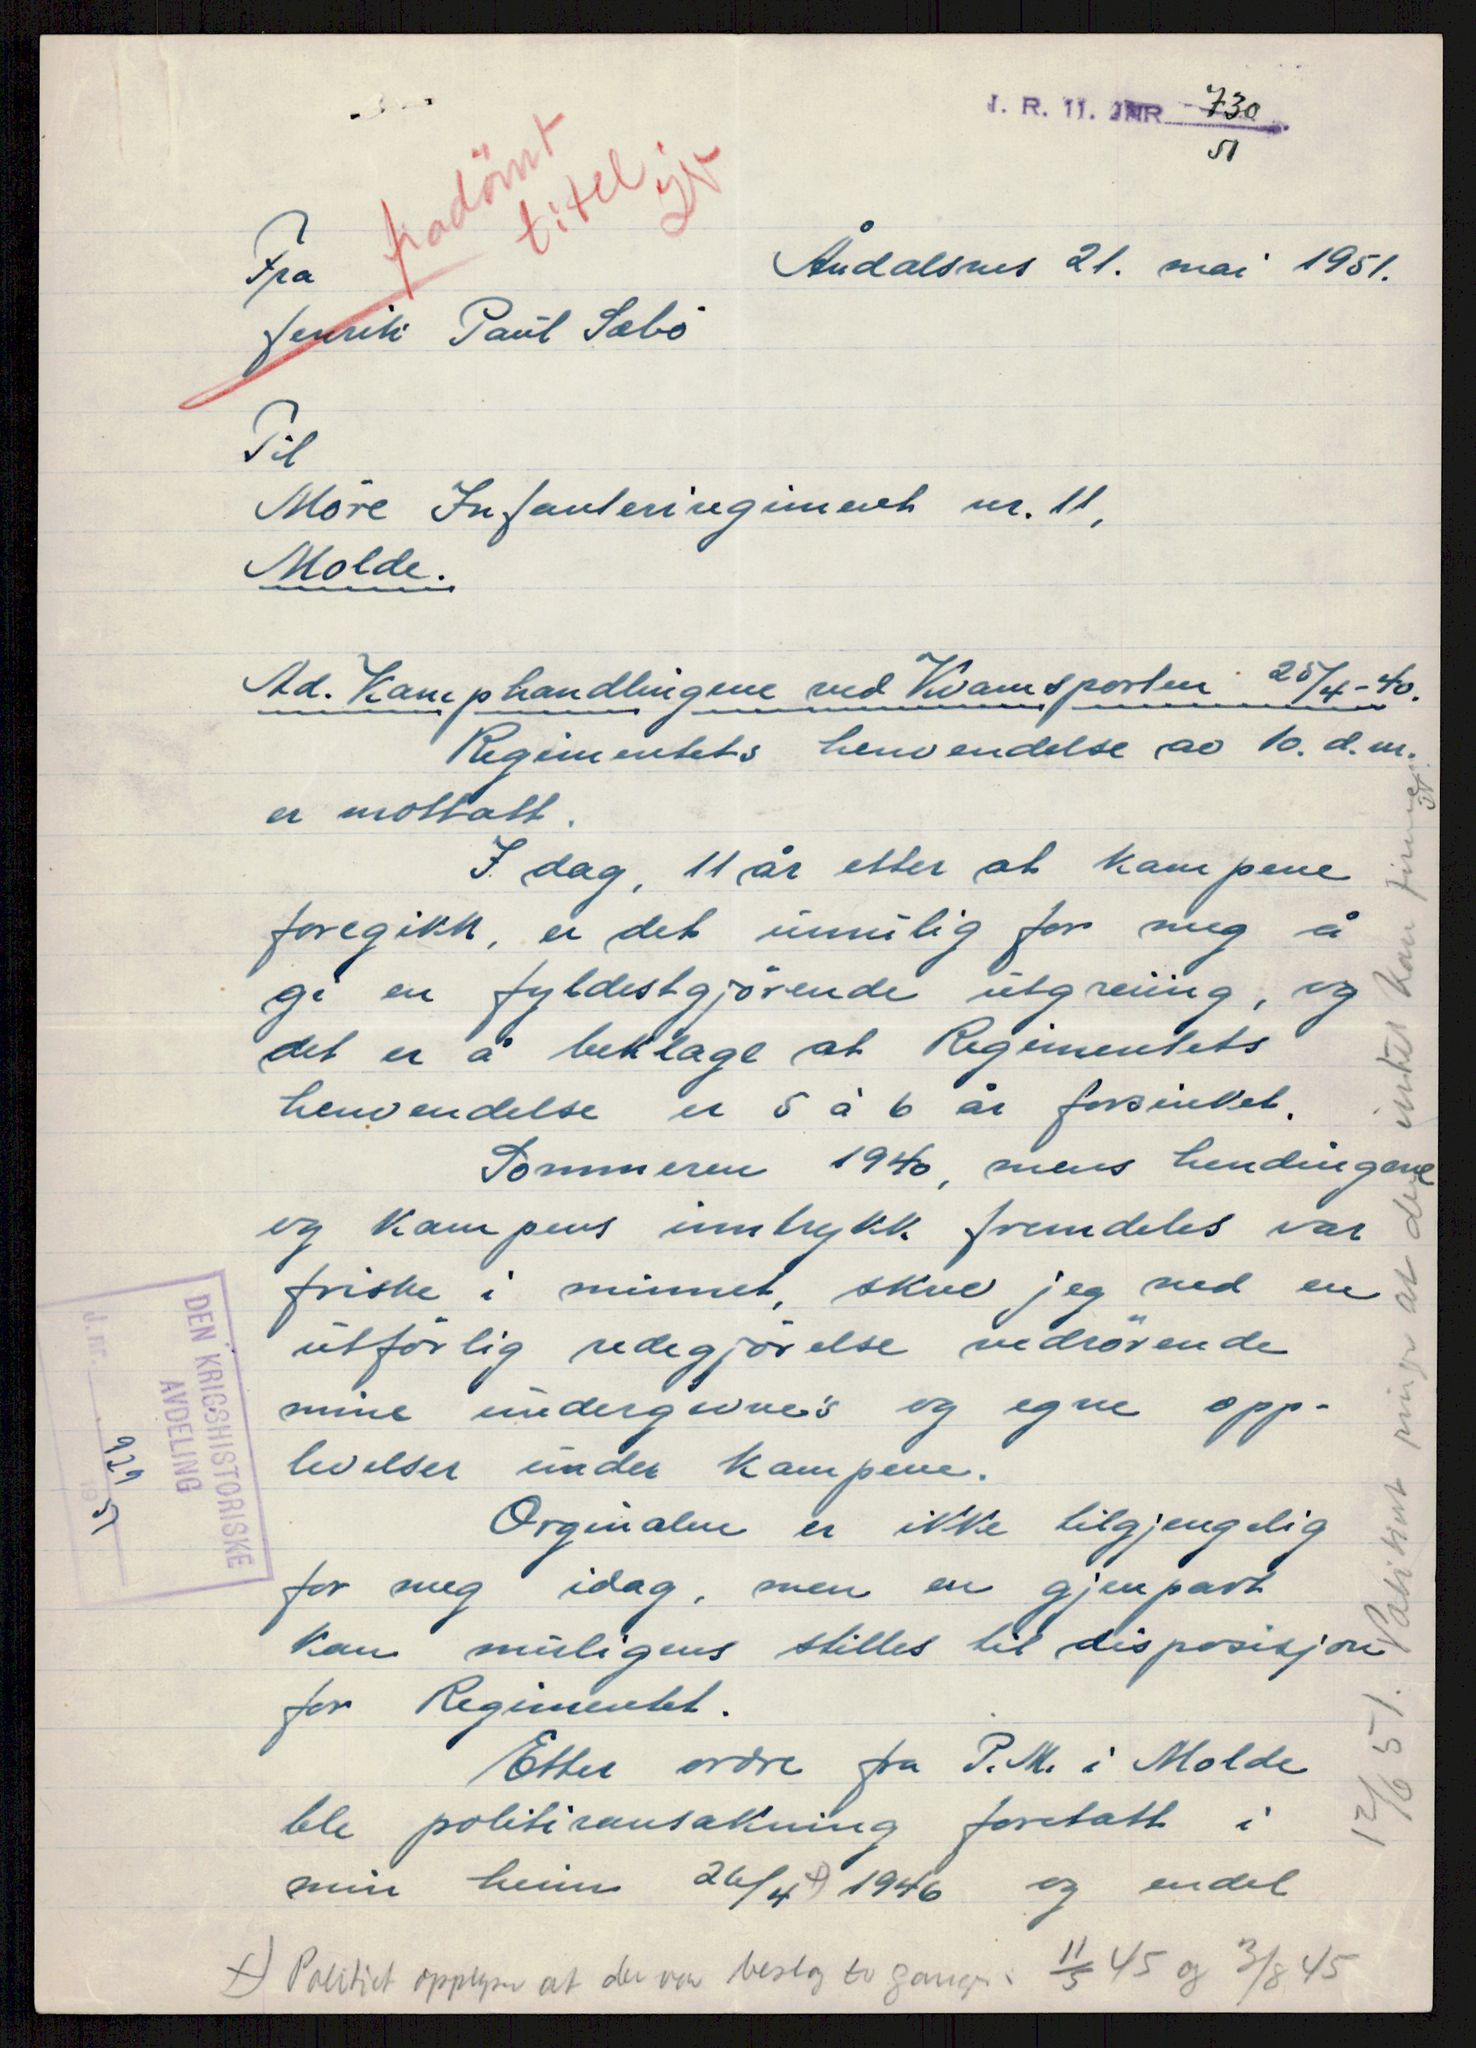 I. R. 11. JNR 730
51
fradømt
titel
Åndalsnes 21. mai 1951.
Fra
fenrik Paul Sæbö
Til
Möre Infanteriregiment nr. 11,
Molde.
Ad. Kamphandlingene ved Kvamsporten 25/4-40.
Regimentets henvendelse av 10. d.m.
er mottatt.
I dag, 11 år etter at kampene
foregikk, er det umulig for meg å
gi en fyldestgjörende utgreiing, og
det er å beklage at Regimentets
henvendelse er 5 à 6 år forsinket.
Sommeren 1940, mens hendingene
og kampens inntrykk fremdeles var
friske i minnet, skrev jeg ned en
utförlig redegjörelse vedrörende
mine undergivne's og egne opp-
levelser under kampene.
Orginalen er ikke tilgjengelig
for meg idag, men en gjenpart
kan muligens stilles til disposisjon
for Regimentet.
Etter ordre fra P.M. i Molde
ble politiransakning foretatt i
min heim 26/4 x) 1946 og endel
x) Politiet opplyser at der var beslag to ganger: 11/5 45 og 3/8 45
12/6 51. Politiet ringer at der intet kan finnes.
DEN KRIGSHISTORISKE
AVDELING
J. nr. 629
1951